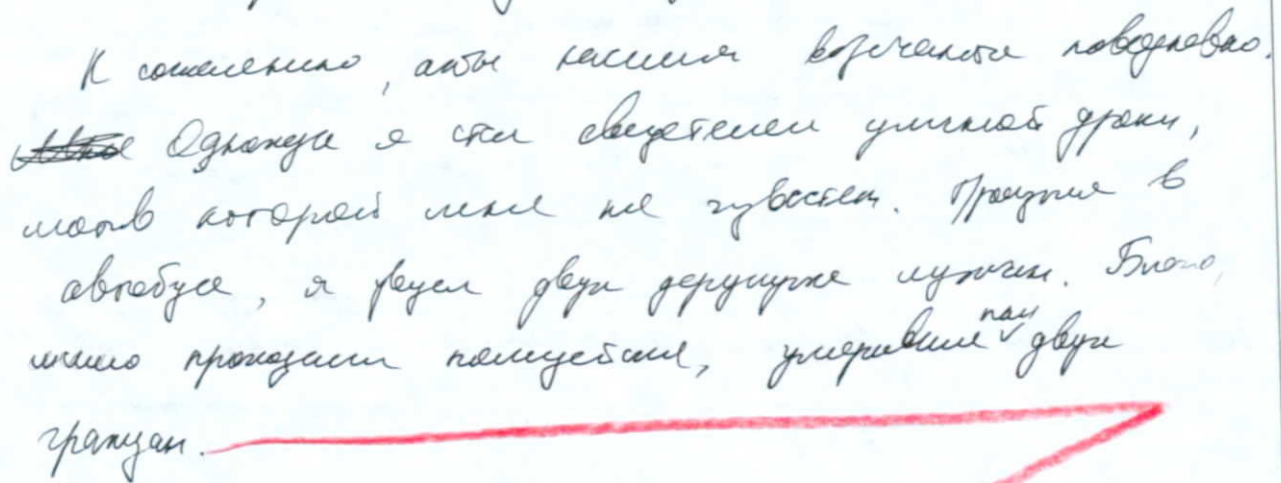 К сожалению, акты насилия встречаются повседневно.
Однажды я стал свидетелем уличной драки,
мотив которой мне не известен. Проезжая в
автобусе, я увидел двух дерущихся мужчин. Благо,
мимо проходили полицейские, усмирившие пыл двух
граждан.